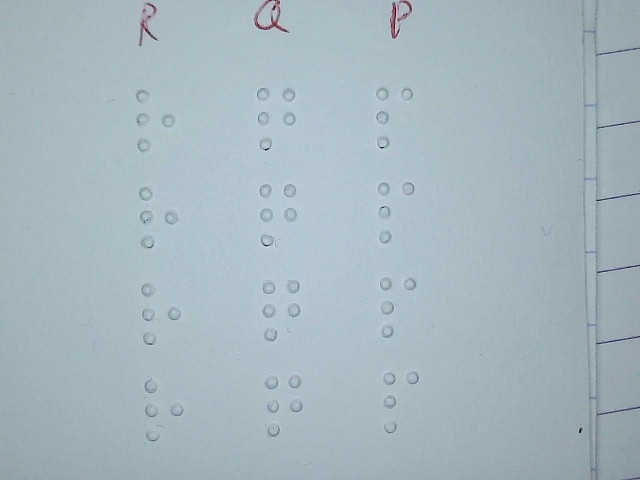 R Q P
⠗ ⠟ ⠏
⠗ ⠟ ⠏
⠗ ⠟ ⠏
⠗ ⠟ ⠏